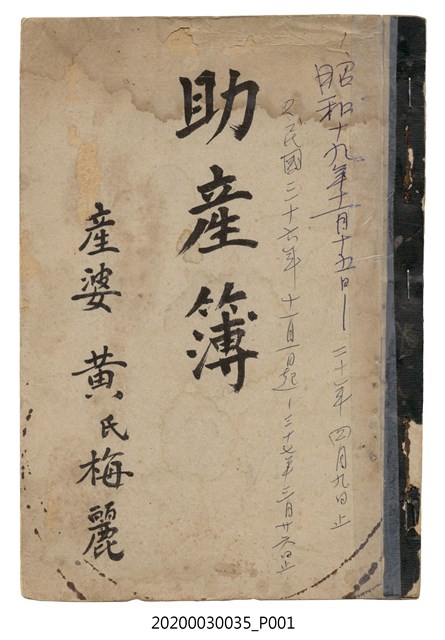 1.昭和十九年十一月十五日—二十一年四月九日止
2.民國三十六年十一月一日起—三十七年三月廿六日止
助産簿
産婆 黄氏梅麗
20200030035_P001